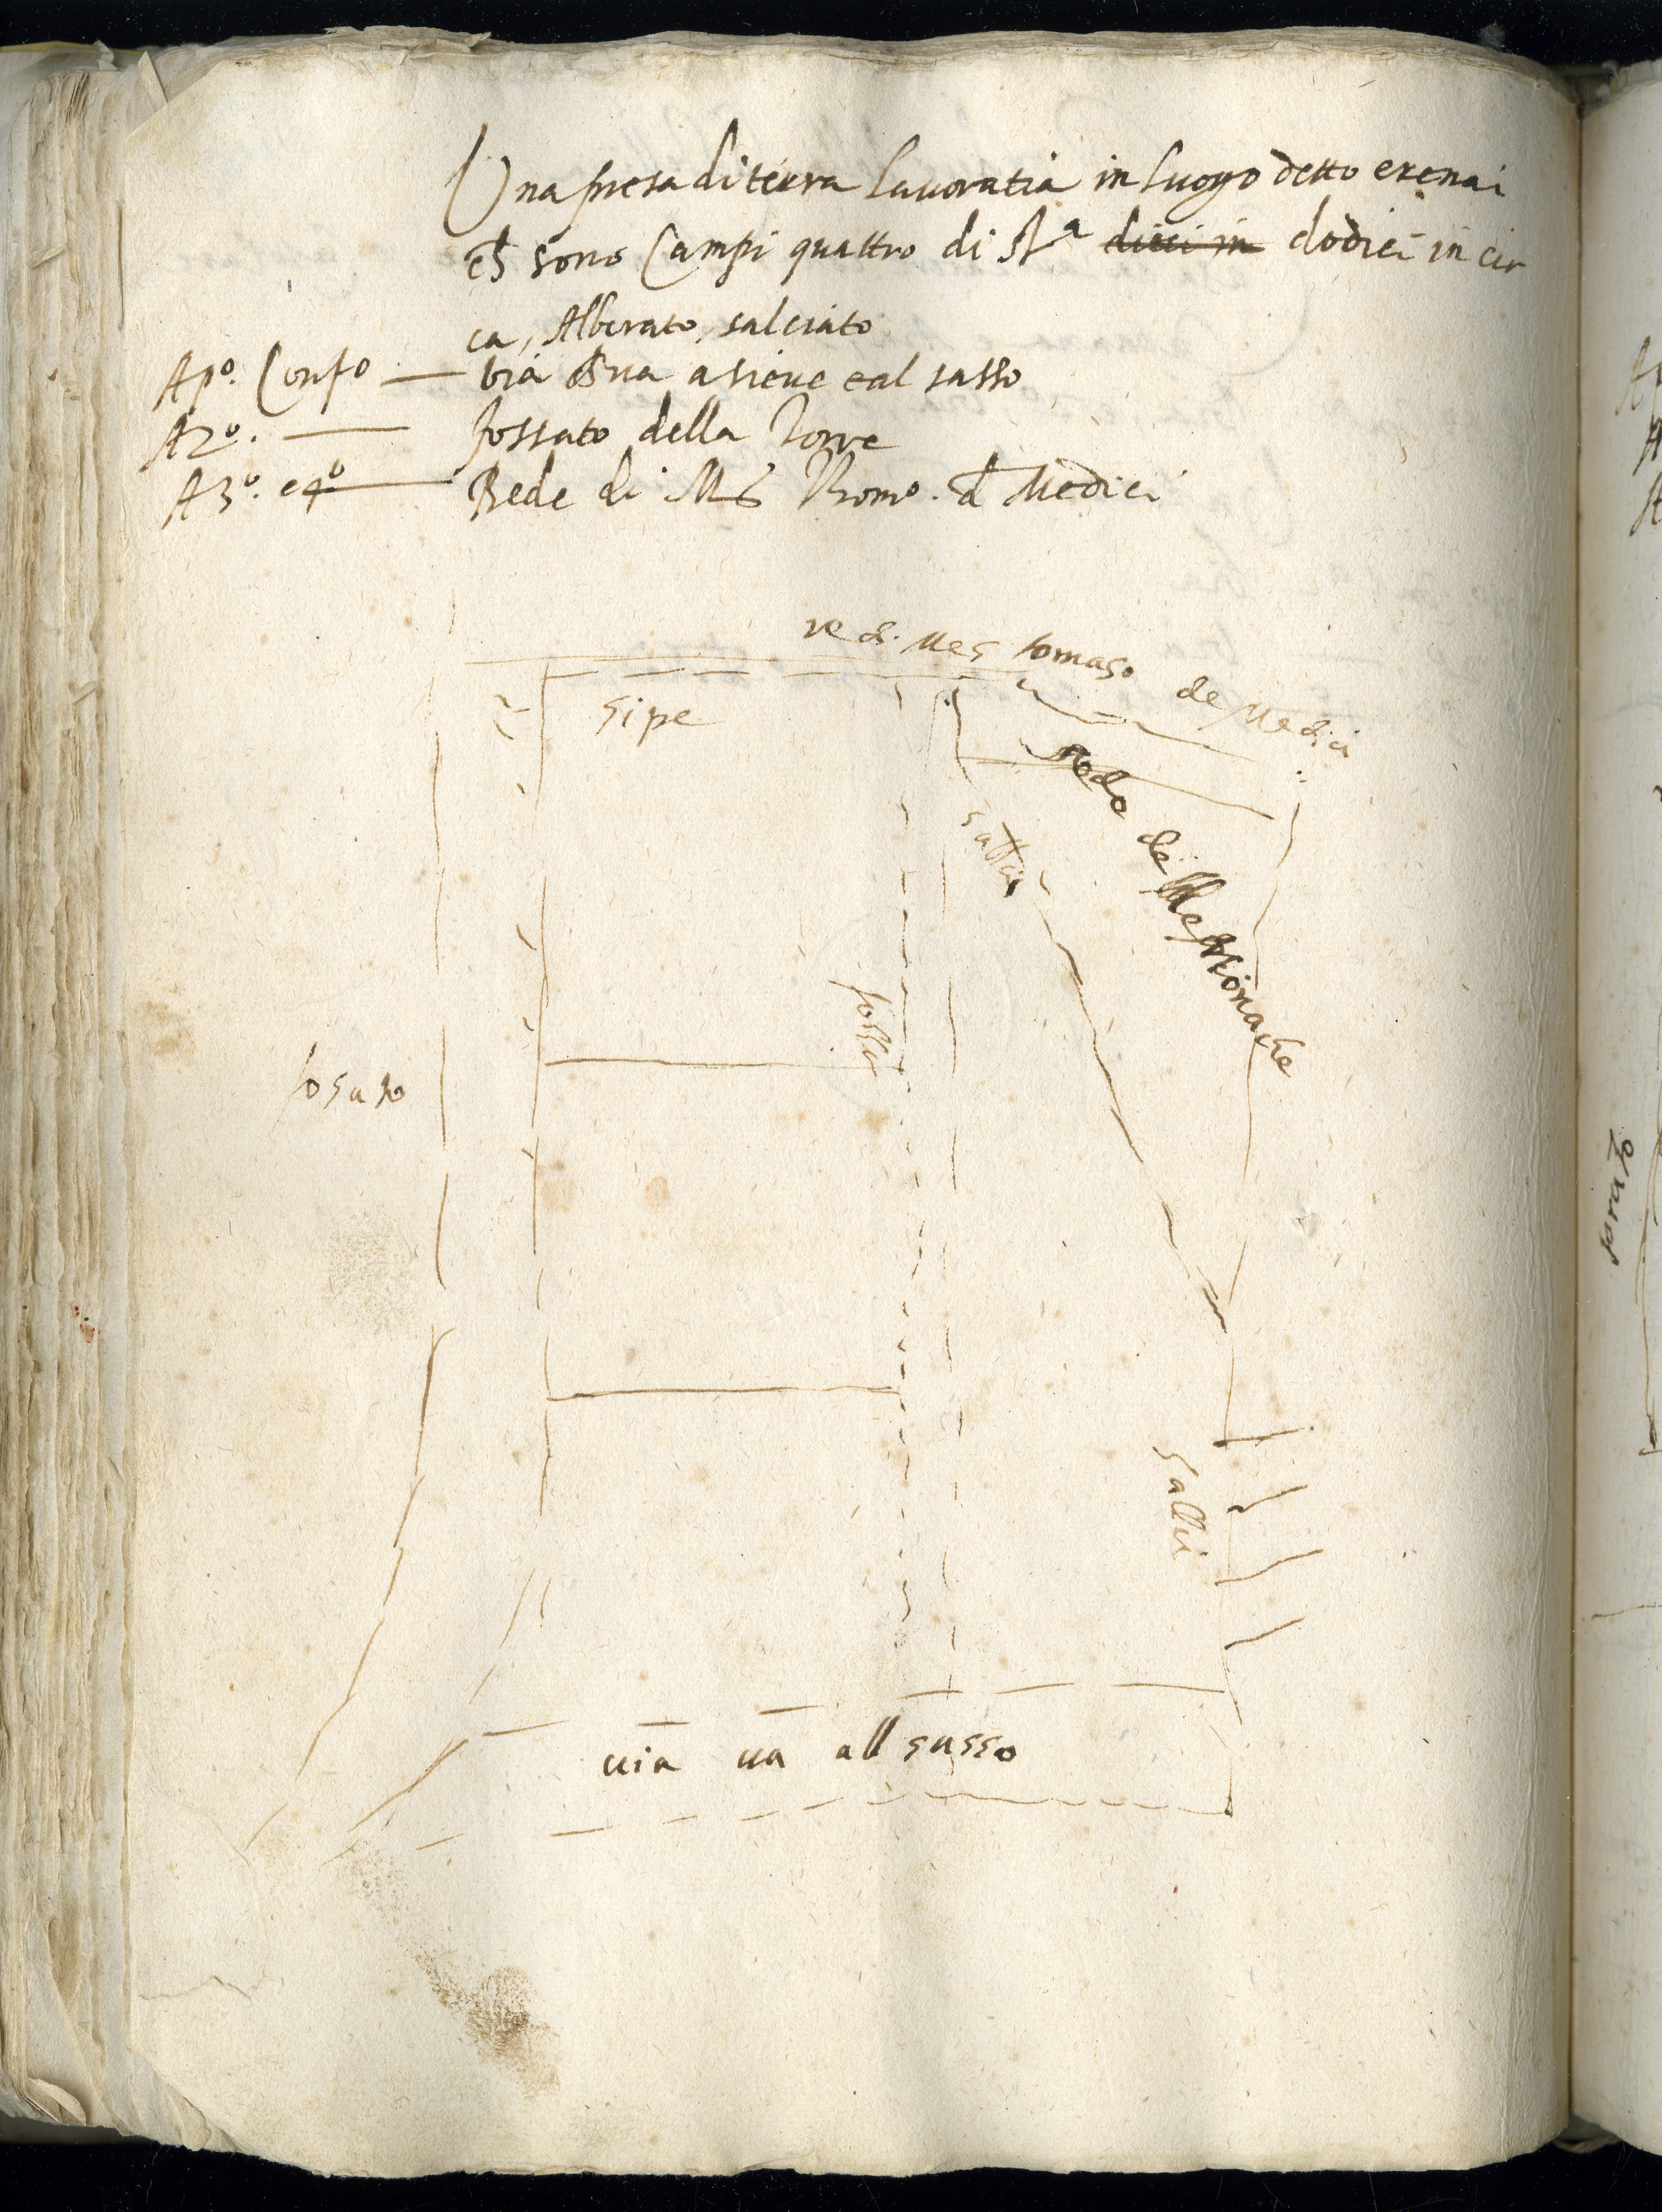 Una presa di terra lavoratia in luogo detto erenai
ch sono Campi quattro di st.a dieci in dodici in cir
ca, Alberato, salciato
A p.o Conf.o — via ch va a sieve e al sasso
A 2.o — fossato della Torre
A 3.o e 4.o — Rede di M Tomo. d Medici
re di Mes tomaso de Medici
sipe
Rede de
salci
fossa
fosato
salci
via va all sasso